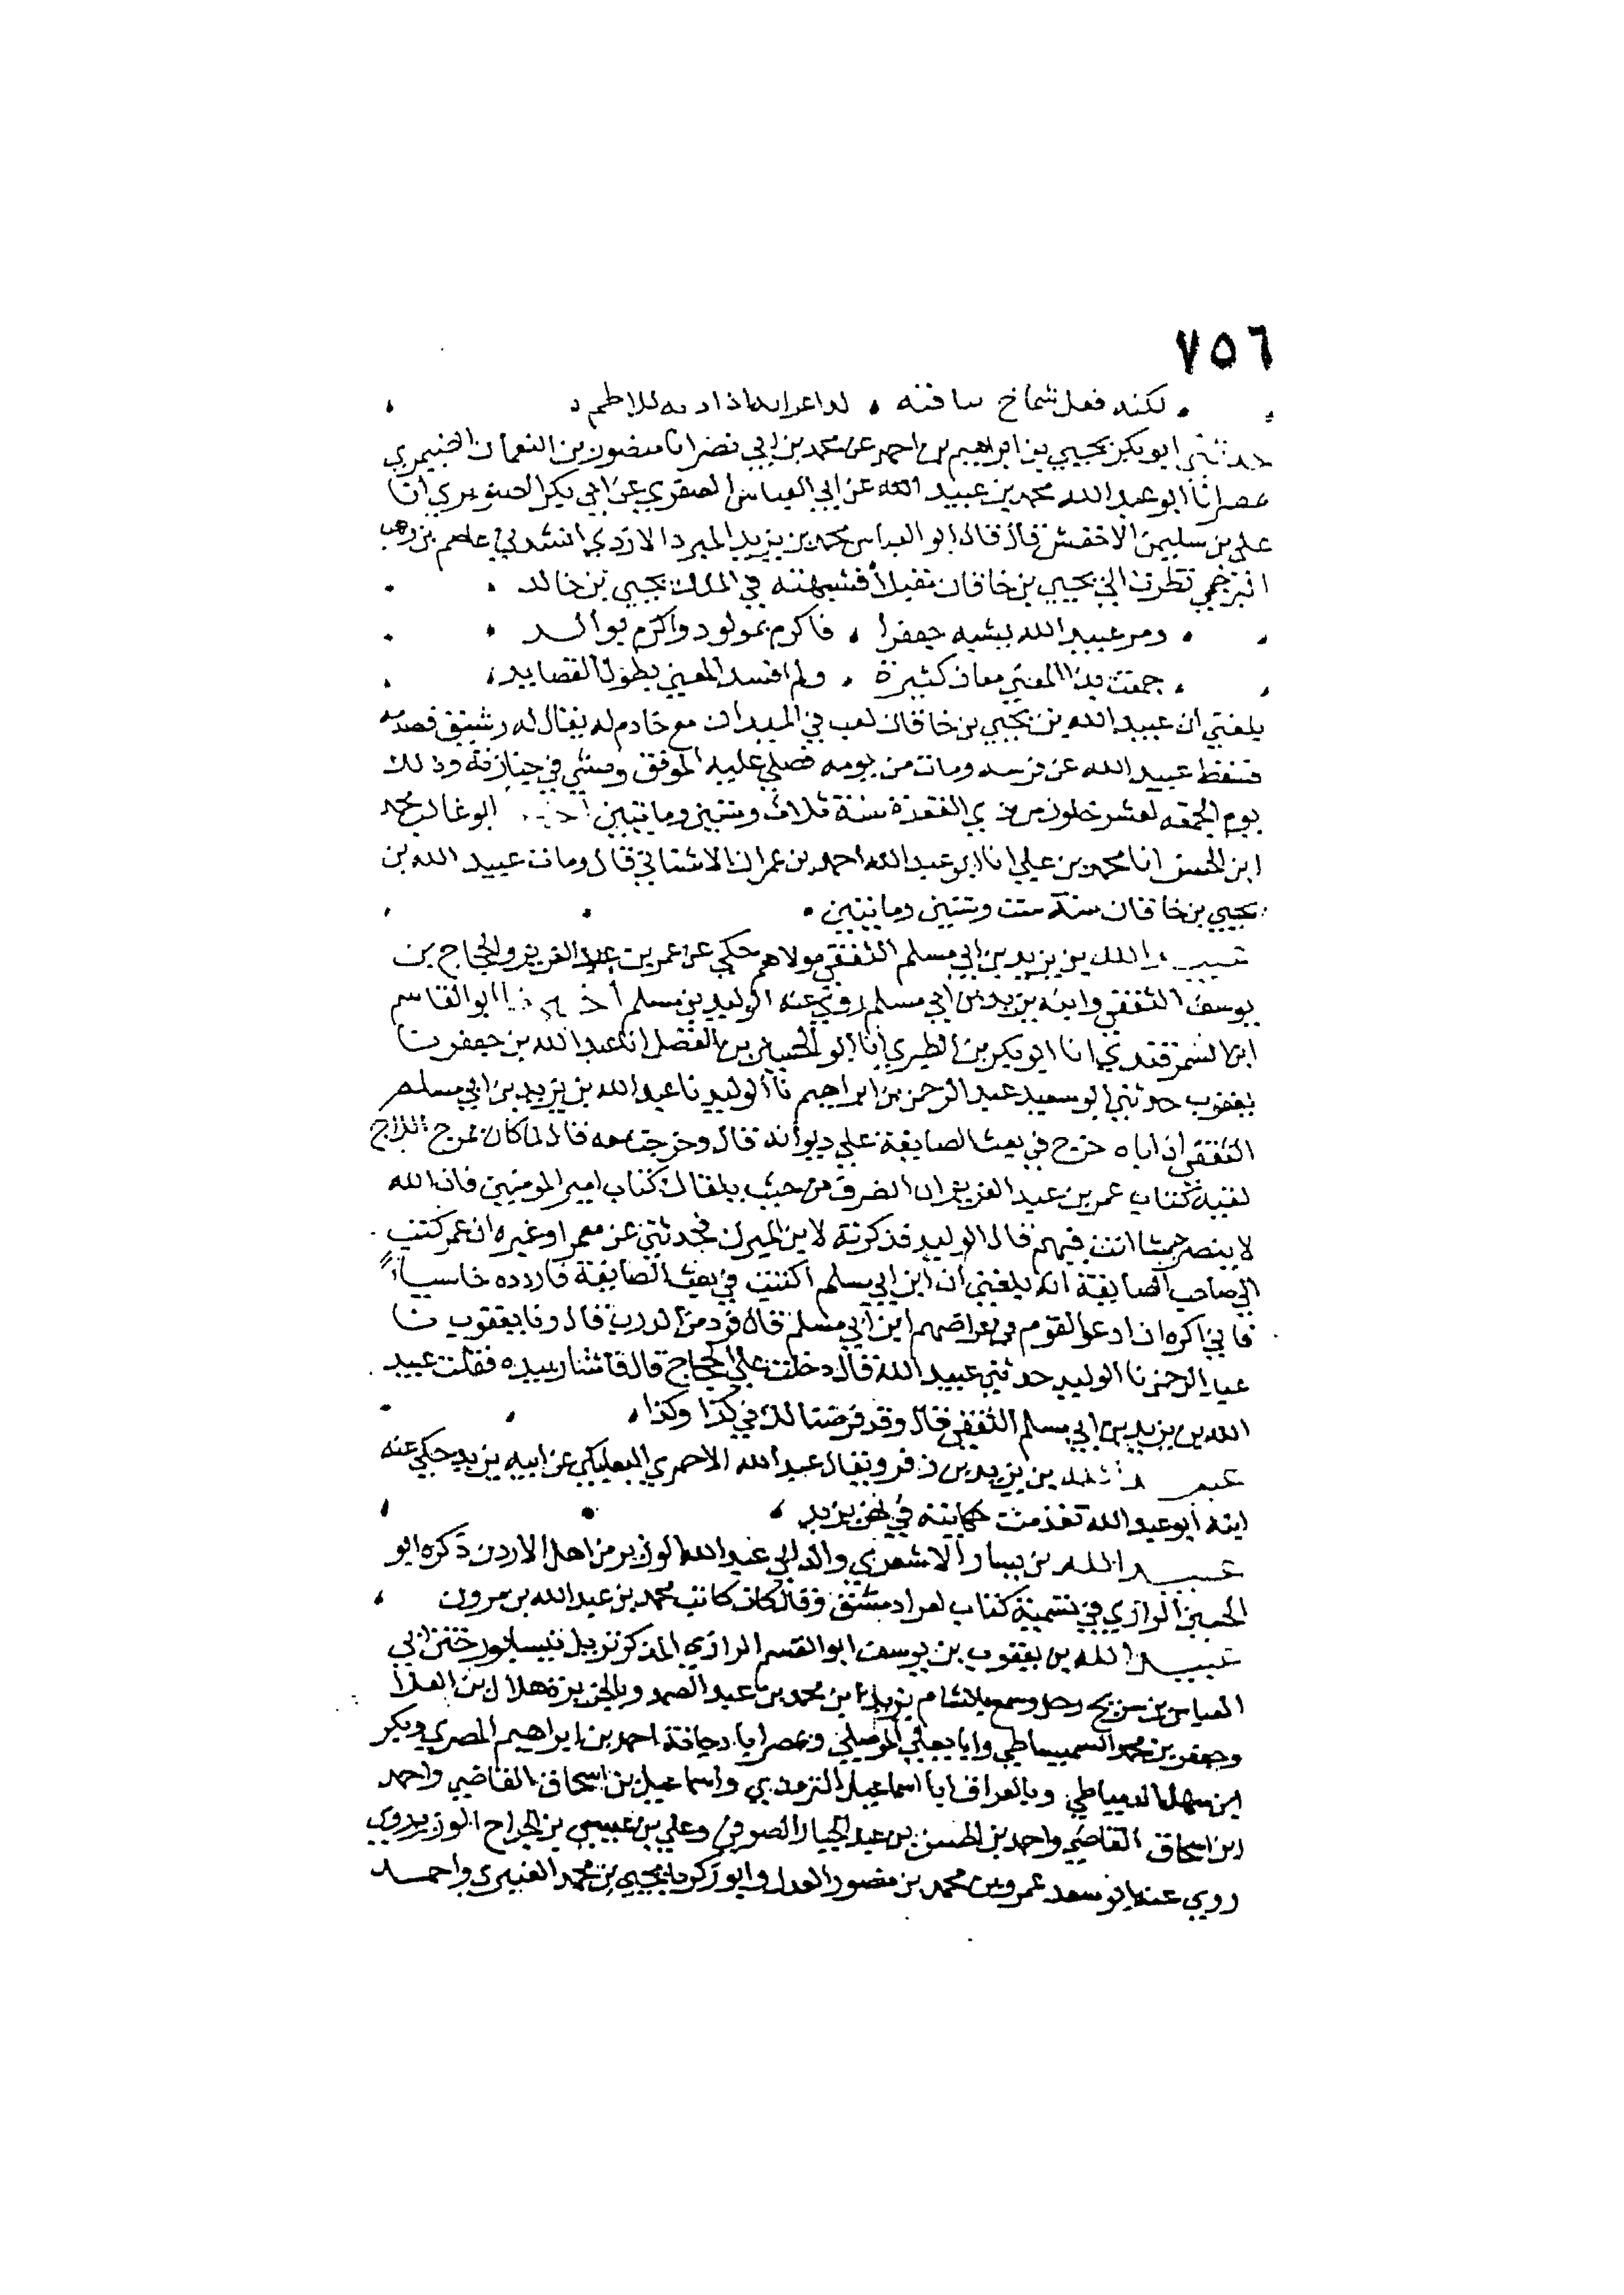 ٧٥٦
لكنه فعل شماخ بناقته
حدثني ابو بكر يحيي بن ابراهيم بن احمد عن محمد بن ابي نصر انا منصور بن النعمان الضيمري
بمصر انا ابو عبد الله محمد بن عبيد الله عن ابي العباس المنقري عن ابي بكر انا
علي بن سليمن الاخفش قال قال ابو العباس محمد بن يزيد المبرد الازدي انشدني عاصم بن وهب
البرجمي نظرت الي يحيي بن خاقان مقبلا فشبهته في الملك يحيي بن خالد
ومر عبيد الله يشبه جعفرا فاكرم بمولود واكرم بوالد
جمعت بهذا المعني معان كثيرة ولم افسد المعني بطول القصايد
بلغني ان عبيد الله بن يحيي بن خاقان لعب في الميدان مع خادم له يقال له رشيق فصدمه
فسقط عبيد الله عن فرسه ومات من يومه فصلي عليه الموفق ومشي في جنازته وذلك
يوم الجمعه لعشر خلون من ذي القعدة سنة ثلاث وستين ومايتين ابو غالب محمد
ابن الحسن انا محمد بن علي انا ابو عبد الله احمد بن عمران الاشناني قال ومات عبيد الله بن
يحيي بن خاقان سنة ست وستين ومايتين
عبيد الله بن يزيد بن ابي مسلم الثقفي مولاهم حكي عن عمر بن عبد العزيز والحجاج بن
يوسف الثقفي وابيه يزيد بن ابي مسلم روي عنه الوليد بن مسلم اخبرنا ابو القاسم
ابن السمرقندي انا ابو بكر بن الطبري انا ابو الحسين بن الفضل انا عبد الله بن جعفر نا
يعقوب حدثني ابو سعيد عبد الرحمن بن ابراهيم نا الوليد نا عبد الله بن يزيد بن ابي مسلم
الثقفي ان اباه خرج في بعث الصايفة علي ديوانه قال وخرجت معه قال لما كان بمرج
لقيه كتاب عمر بن عبد العزيز ان انصرف من حيث يلقاك كتاب امير المومنين فان الله
لا ينصر جيشا انت فيهم قال الوليد فذكرته لابن المبرك فحدثني عن معمر او غيره ان عمر كتب
الي صاحب الصايفة انه بلغني ان ابن ابي مسلم اكتتب في بعث الصايفة فاردده خاسيا
فاني اكره ان ادعو لقوم فيهم ابن ابي مسلم قال فرد من الدرب قال ونا يعقوب نا
عبد الرحمن نا الوليد حدثني عبيد الله قال دخلت علي الحجاج قال فاشار بيده فقلت عبيد
الله بن يزيد بن ابي مسلم الثقفي قال وقد فرضنا لك في كذا وكذا
عبيد الله بن يزيد بن زفر ويقال عبد الله الاحمري البعلبكي عن ابيه يزيد حكي عنه
ابنه ابو عبد الله تقدمت حكايته في يزيد
عبيد الله بن يسار الاشعري والد ابي عبد الله الوزير من اهل الاردن ذكره ابو
الحسين الرازي في تسمية كتاب امرا دمشق وقال كان كاتب محمد بن عبد الله بن مرون
عبيد الله بن يعقوب بن يوسف ابو القسم الرازي المذكر نزيل نيسابور ختن ابي
العباس بن سريج رحل وسمع بالشام يزيد بن محمد بن عبد الصمد وبالجزيرة هلال بن العلا
وجعفر بن محمد السميساطي وابا يعلي الموصلي وبمصر ابا دجانة احمد بن ابراهيم المصري وبكر
ابن سهل الدمياطي وبالعراق ابا اسماعيل الترمذي واسماعيل بن اسحاق القاضي واحمد
ابن اسحاق القاضي واحمد بن الحسن بن عبد الجبار الصوفي وعلي بن عيسي بن الجراح الوزير وروي
روي عنه ابو سعد عمرو بن محمد بن منصور العدل وابو زكريا يحيي بن محمد العنبري واحمد